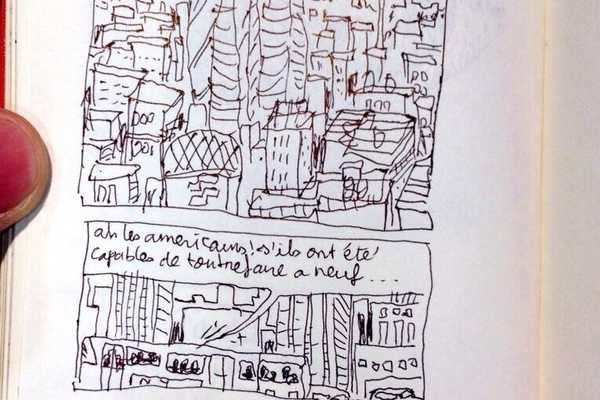 ah les americains! s'ils ont été
capables de tout refaire a neuf ...